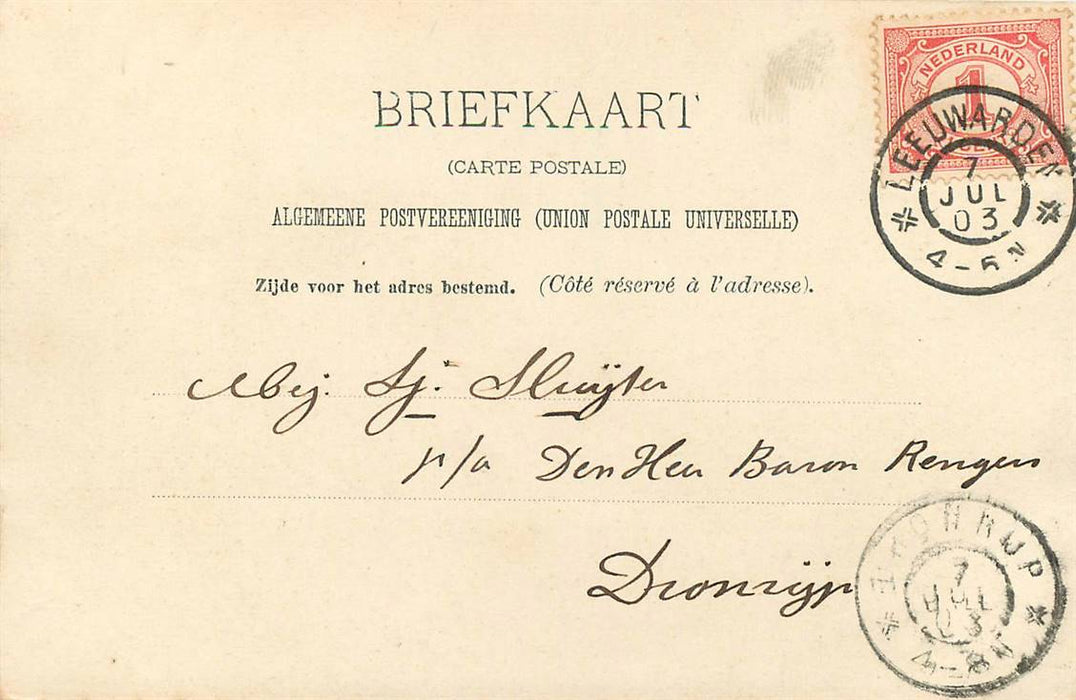 BRIEFKAART
(CARTE POSTALE)
ALGEMEENE POSTVEREENIGING (UNION POSTALE UNIVERSELLE)
Zijde voor het adres bestemd. (Côté réservé à l'adresse).
NEDERLAND
1
LEEUWARDEN
7
JUL
03
4-5N
Mej. Sj. Sluyter
p/a Den Heer Baron Rengers
Dronrijp
DRONRIJP
7
JUL
03